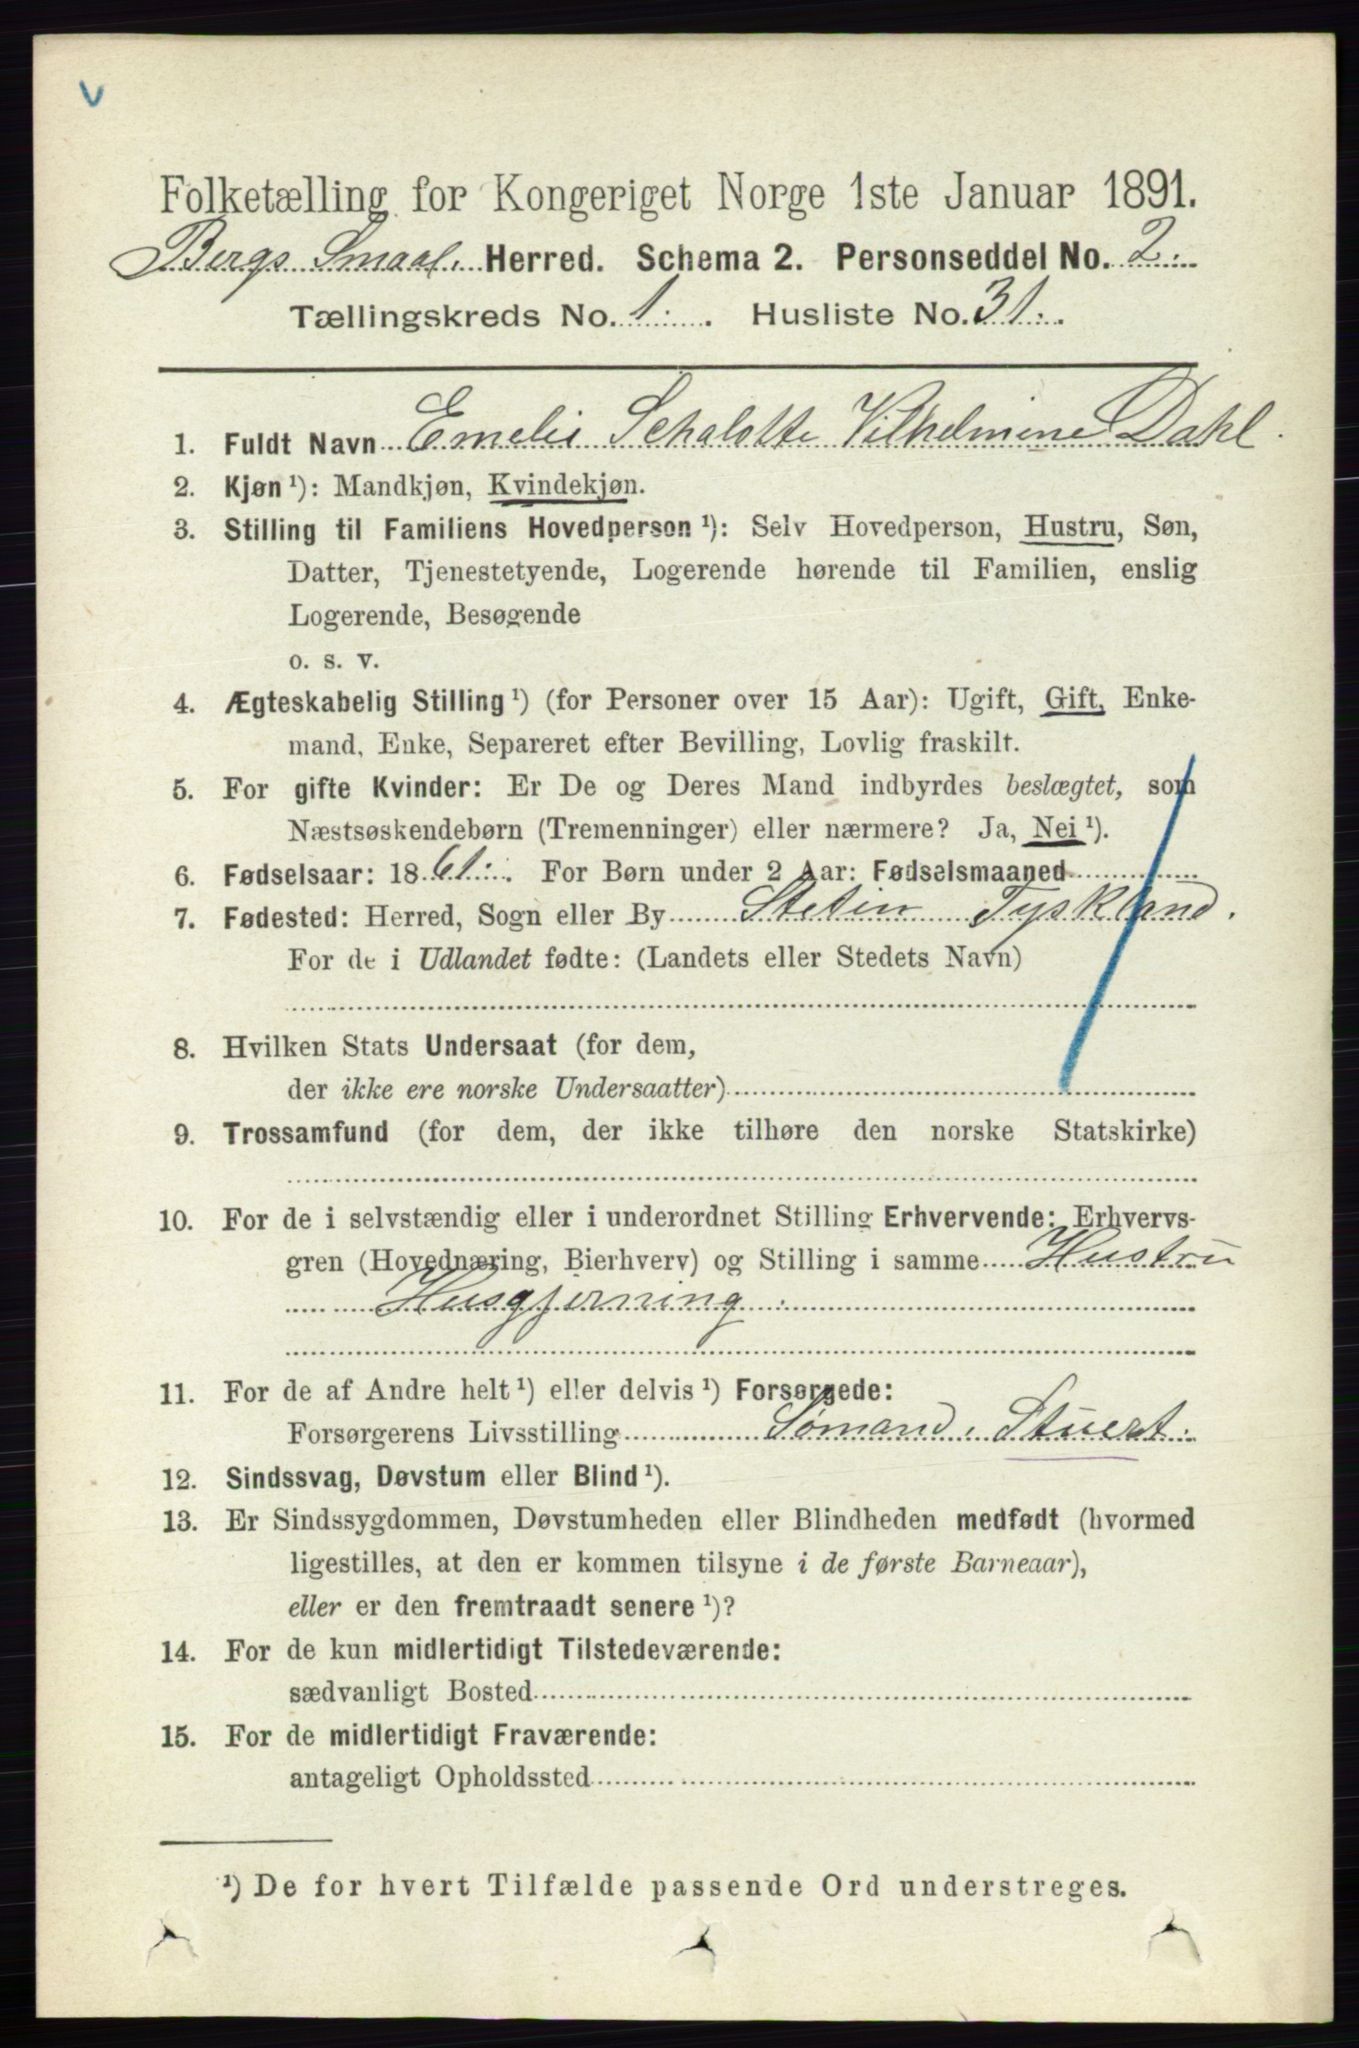 Folketælling for Kongeriget Norge 1ste Januar 1891.
Bergs Smaal. Herred. Schema 2. Personseddel No. 2.
Tællingskreds No. 1. Husliste No. 31.
1. Fuldt Navn Emelie Schalotte Vilhelmine Dahl.
2. Kjøn ¹): Mandkjøn, Kvindekjøn.
3. Stilling til Familiens Hovedperson ¹): Selv Hovedperson, Hustru, Søn,
Datter, Tjenestetyende, Logerende hørende til Familien, enslig
Logerende, Besøgende
o. s. v.
4. Ægteskabelig Stilling ¹) (for Personer over 15 Aar): Ugift, Gift, Enke-
mand, Enke, Separeret efter Bevilling, Lovlig fraskilt.
5. For gifte Kvinder: Er De og Deres Mand indbyrdes beslægtet, som
Næstsøskendebørn (Tremenninger) eller nærmere? Ja, Nei ¹).
6. Fødselsaar: 1861. For Børn under 2 Aar: Fødselsmaaned
7. Fødested: Herred, Sogn eller By Stetin Tyskland.
For de i Udlandet fødte: (Landets eller Stedets Navn)
8. Hvilken Stats Undersaat (for dem,
der ikke ere norske Undersaatter)
9. Trossamfund (for dem, der ikke tilhøre den norske Statskirke)
10. For de i selvstændig eller i underordnet Stilling Erhvervende: Erhvervs-
gren (Hovednæring, Bierhverv) og Stilling i samme Hustru
Husgjerning.
11. For de af Andre helt ¹) eller delvis ¹) Forsørgede:
Forsørgerens Livsstilling Sömand, Stuert.
12. Sindssvag, Døvstum eller Blind ¹).
13. Er Sindssygdommen, Døvstumheden eller Blindheden medfødt (hvormed
ligestilles, at den er kommen tilsyne i de første Barneaar),
eller er den fremtraadt senere ¹)?
14. For de kun midlertidigt Tilstedeværende:
sædvanligt Bosted
15. For de midlertidigt Fraværende:
antageligt Opholdssted
¹) De for hvert Tilfælde passende Ord understreges.